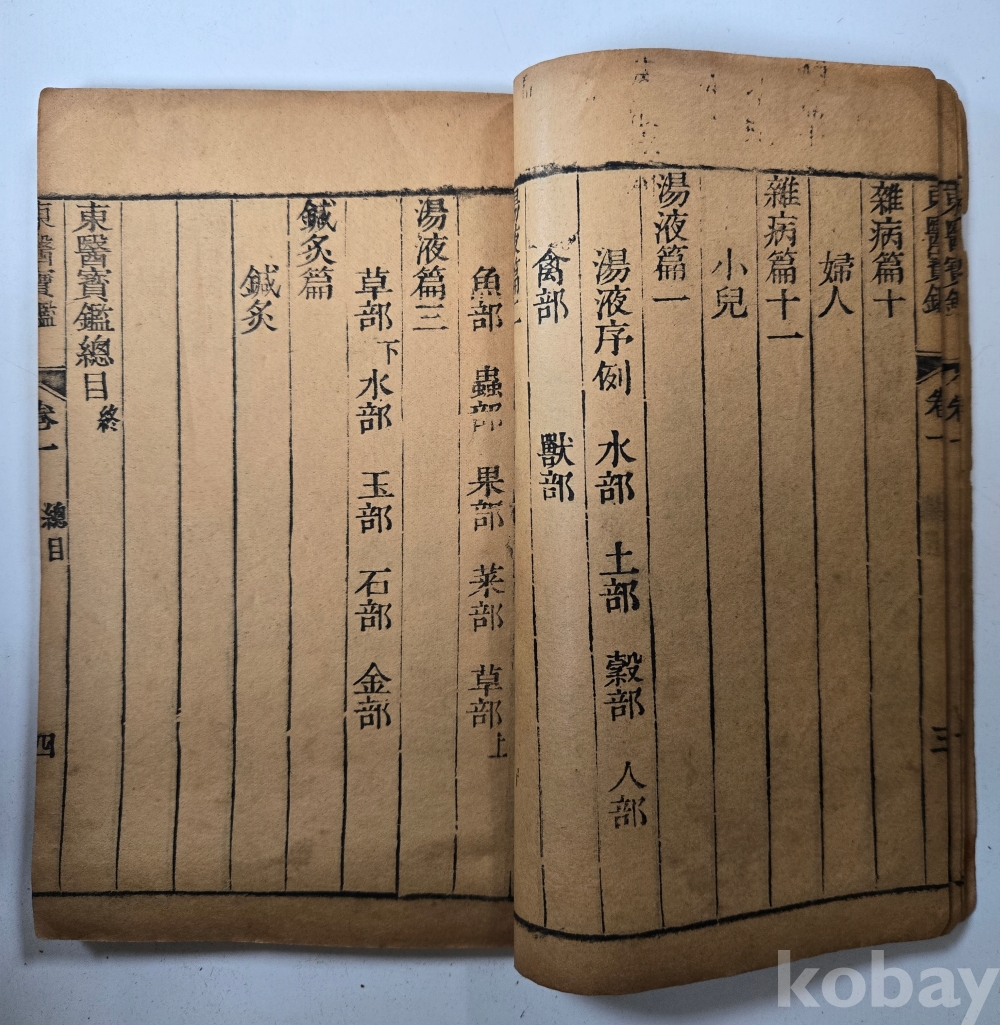 東醫寶鑑 卷一 三
雜病篇十
婦人
雜病篇十一
小兒
湯液篇一
湯液序例 水部 土部 穀部 人部
禽部 獸部
魚部 蟲部 果部 菜部 草部上
湯液篇三
草部下 水部 玉部 石部 金部
鍼灸篇
鍼灸
東醫寶鑑總目終
東醫寶鑑 卷一 總目 四
kobay